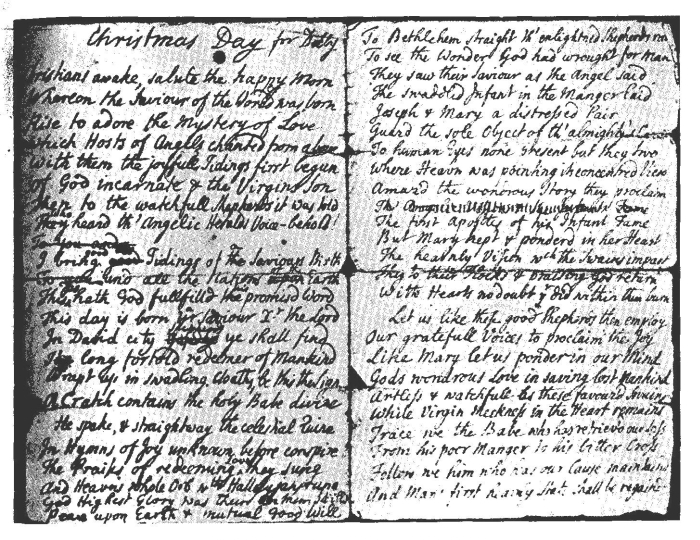 Christmas Day for Dolly
Christians awake, salute the happy Morn
Whereon the Saviour of the World was born
Rise to adore the Mystery of Love
which Hosts of Angels chanted from above
With them the joyfull Tidings first begun
of God incarnate & the Virgins Son
Then to the watchfull Shepherds it was told
Who heard th' Angelic Heralds Voice - behold!
I bring good Tidings of the Saviours Birth
To you and all the Nations Earth
This day hath God fullfilld the promisd Word
This day is born Saviour the Lord
In David city ye shall find
The long foretold redeemer of Mankind
Wrapt up in swadling be this the Sign
A Cratch contains the holy Babe divine
He spake, & straightway the celestial Quire
In Hymns of Joy unknown before conspire
The Praises of redeeming they sung
And Heavens whole Orb wth Hallelujas rung
God Highest Glory was their
Peace upon Earth & mutual good Will
To Bethlehem straight th' enlightned Shepherds ran
To see the Wonder God had wrought for Man
They saw their Saviour as the Angel said
The swaddled Infant in the Manger laid
Joseph & Mary a distressed Pair
Guard the sole Object of th' almighty's Care
To human Eyes none present but they two
where Heavn was pointing its concentred View
Amazd the wondrous Story they proclaim
The first Apostles of his Infant Fame
But Mary kept & ponderd in her Heart
The heavnly Vision wch the Swains impart
They to their Flocks & praising God return
With Hearts no doubt yt did within them burn
Let us like these good Shepherds then employ
Our gratefull Voices to proclaim the Joy
Like Mary let us ponder in our Mind
Gods wondrous Love in saving lost Mankind
Artless & watchfull as these favourd Swains
While Virgin Meekness in the Heart remains
Trace we the Babe who has retrievd our Loss
From his poor Manger to his bitter Cross
Follow we him who has our Cause maintaind
And Man's first heavnly State shall be regaind